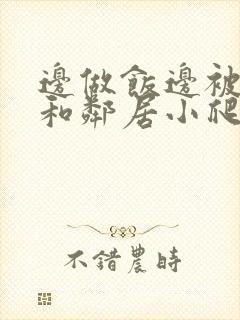 邊做飯邊被
和鄰居小爬
不錯農時